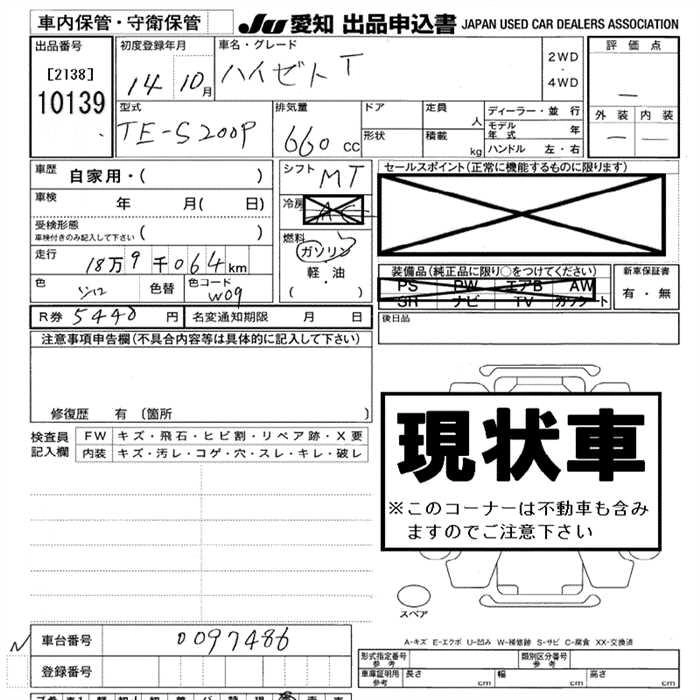 車内保管・守衛保管
JU 愛知 出品申込書 JAPAN USED CAR DEALERS ASSOCIATION
出品番号
[2138]
10139
初度登録年月
14 10月
車名・グレード
ハイゼト T
2WD
・
4WD
評価点
—
外装 内装
— —
型式
TE-S200P
排気量
660 cc
ドア
形状
定員
人
積載
kg
ディーラー・並行
モデル年式 年
ハンドル 左・右
車歴
自家用・( )
車検
年 月( 日)
受検形態
車検付きのみ記入して下さい ( )
走行
18万9千064km
色
シロ
色替
色コード
W09
シフト
MT
冷房
AC
燃料
ガソリン
軽・油
( )
セールスポイント(正常に機能するものに限ります)
装備品(純正品に限り○をつけてください)
PS PW エアB AW
SR ナビ TV カワシート
新車保証書
有・無
R券 5440 円
名変通知期限 月 日
後日品
注意事項申告欄(不具合内容等は具体的に記入して下さい)
修復歴 有 〔箇所 〕
検査員
記入欄
FW キズ・飛石・ヒビ割・リペア跡・X要
内装 キズ・汚レ・コゲ・穴・スレ・キレ・破レ
現状車
※このコーナーは不動車も含み
ますのでご注意下さい
スペア
A-キズ E-エクボ U-凹み W-補修跡 S-サビ C-腐食 XX-交換済
N 車台番号 0097486
登録番号
形式指定番号
参考
類別区分番号
参考
車庫証明用
参考
長さ cm 幅 cm 高さ cm